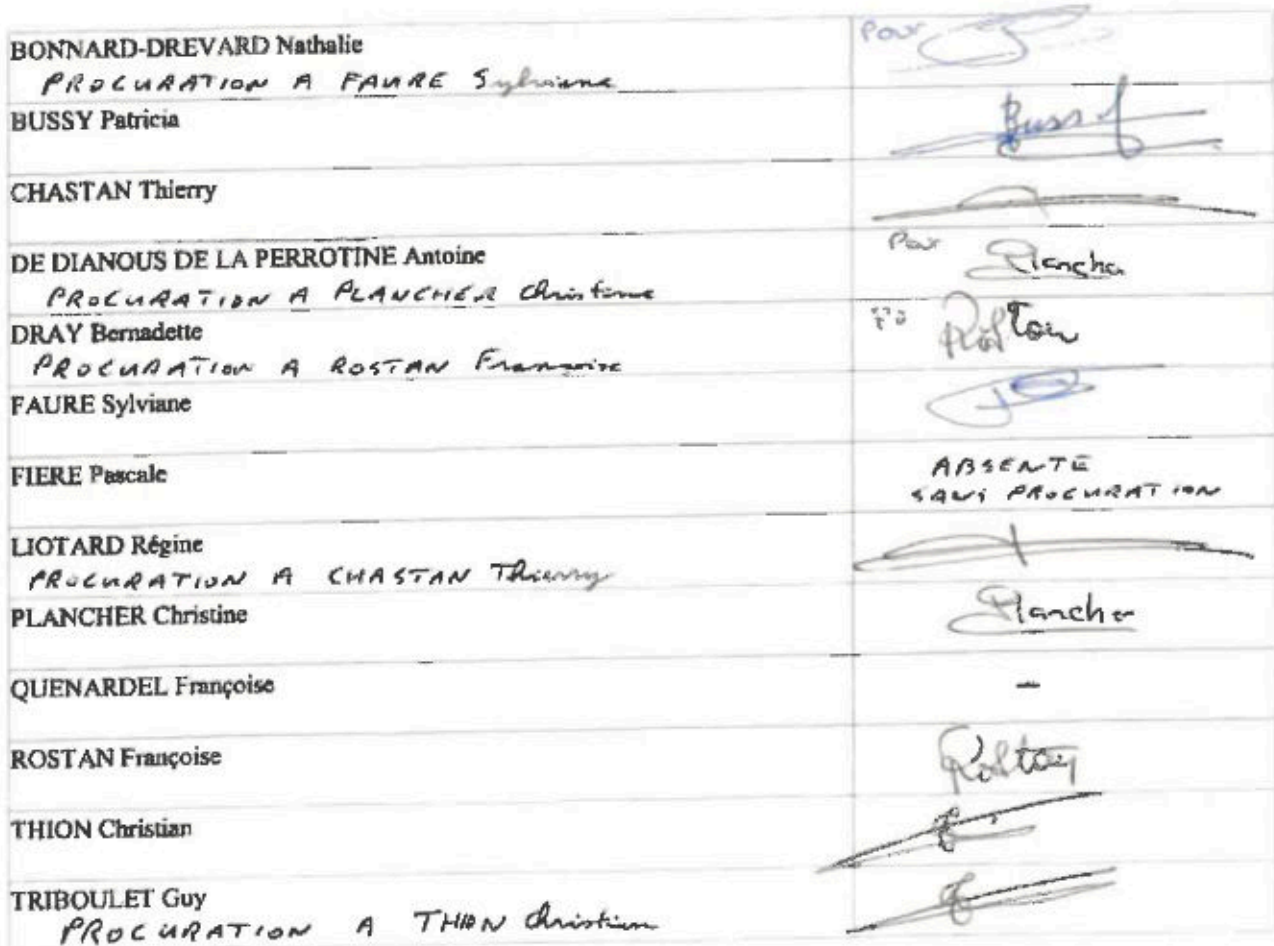 BONNARD-DREVARD Nathalie Pour
PROCURATION A FAURE Sylviane
BUSSY Patricia Bussy
CHASTAN Thierry
DE DIANOUS DE LA PERROTINE Antoine Pour Plancher
PROCURATION A PLANCHER Christine
DRAY Bernadette Rostan
PROCURATION A ROSTAN Françoise
FAURE Sylviane
FIERE Pascale ABSENTE
SANS PROCURATION
LIOTARD Régine
PROCURATION A CHASTAN Thierry
PLANCHER Christine Plancher
QUENARDEL Françoise -
ROSTAN Françoise Rostan
THION Christian
TRIBOULET Guy
PROCURATION A THION Christian